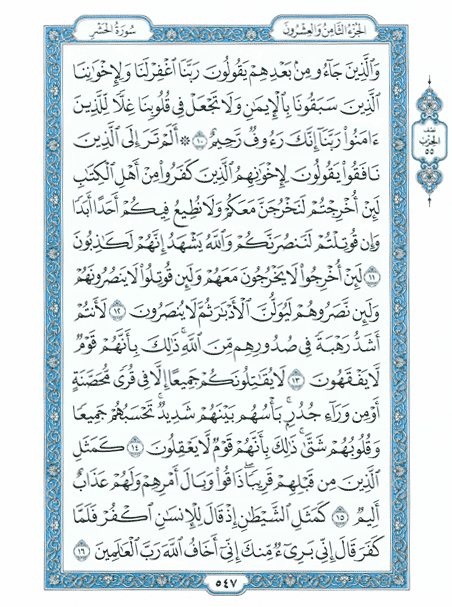 الجزء الثامن والعشرون
سورة الحشر
وَٱلَّذِينَ جَآءُو مِنۢ بَعۡدِهِمۡ يَقُولُونَ رَبَّنَا ٱغۡفِرۡ لَنَا وَلِإِخۡوَٰنِنَا
ٱلَّذِينَ سَبَقُونَا بِٱلۡإِيمَٰنِ وَلَا تَجۡعَلۡ فِي قُلُوبِنَا غِلّٗا لِّلَّذِينَ
ءَامَنُواْ رَبَّنَآ إِنَّكَ رَءُوفٞ رَّحِيمٌ ١٠ ۞ أَلَمۡ تَرَ إِلَى ٱلَّذِينَ
نَافَقُواْ يَقُولُونَ لِإِخۡوَٰنِهِمُ ٱلَّذِينَ كَفَرُواْ مِنۡ أَهۡلِ ٱلۡكِتَٰبِ
لَئِنۡ أُخۡرِجۡتُمۡ لَنَخۡرُجَنَّ مَعَكُمۡ وَلَا نُطِيعُ فِيكُمۡ أَحَدًا أَبَدٗا
وَإِن قُوتِلۡتُمۡ لَنَنصُرَنَّكُمۡ وَٱللَّهُ يَشۡهَدُ إِنَّهُمۡ لَكَٰذِبُونَ
١١ لَئِنۡ أُخۡرِجُواْ لَا يَخۡرُجُونَ مَعَهُمۡ وَلَئِن قُوتِلُواْ لَا يَنصُرُونَهُمۡ
وَلَئِن نَّصَرُوهُمۡ لَيُوَلُّنَّ ٱلۡأَدۡبَٰرَ ثُمَّ لَا يُنصَرُونَ ١٢ لَأَنتُمۡ
أَشَدُّ رَهۡبَةٗ فِي صُدُورِهِم مِّنَ ٱللَّهِۚ ذَٰلِكَ بِأَنَّهُمۡ قَوۡمٞ
لَّا يَفۡقَهُونَ ١٣ لَا يُقَٰتِلُونَكُمۡ جَمِيعًا إِلَّا فِي قُرٗى مُّحَصَّنَةٍ
أَوۡ مِن وَرَآءِ جُدُرِۭۚ بَأۡسُهُم بَيۡنَهُمۡ شَدِيدٞۚ تَحۡسَبُهُمۡ جَمِيعٗا
وَقُلُوبُهُمۡ شَتَّىٰۚ ذَٰلِكَ بِأَنَّهُمۡ قَوۡمٞ لَّا يَعۡقِلُونَ ١٤ كَمَثَلِ
ٱلَّذِينَ مِن قَبۡلِهِمۡ قَرِيبٗاۖ ذَاقُواْ وَبَالَ أَمۡرِهِمۡ وَلَهُمۡ عَذَابٌ
أَلِيمٞ ١٥ كَمَثَلِ ٱلشَّيۡطَٰنِ إِذۡ قَالَ لِلۡإِنسَٰنِ ٱكۡفُرۡ فَلَمَّا
كَفَرَ قَالَ إِنِّي بَرِيٓءٞ مِّنكَ إِنِّيٓ أَخَافُ ٱللَّهَ رَبَّ ٱلۡعَٰلَمِينَ ١٦
٥٤٧
نصف
الحزب
٥٥